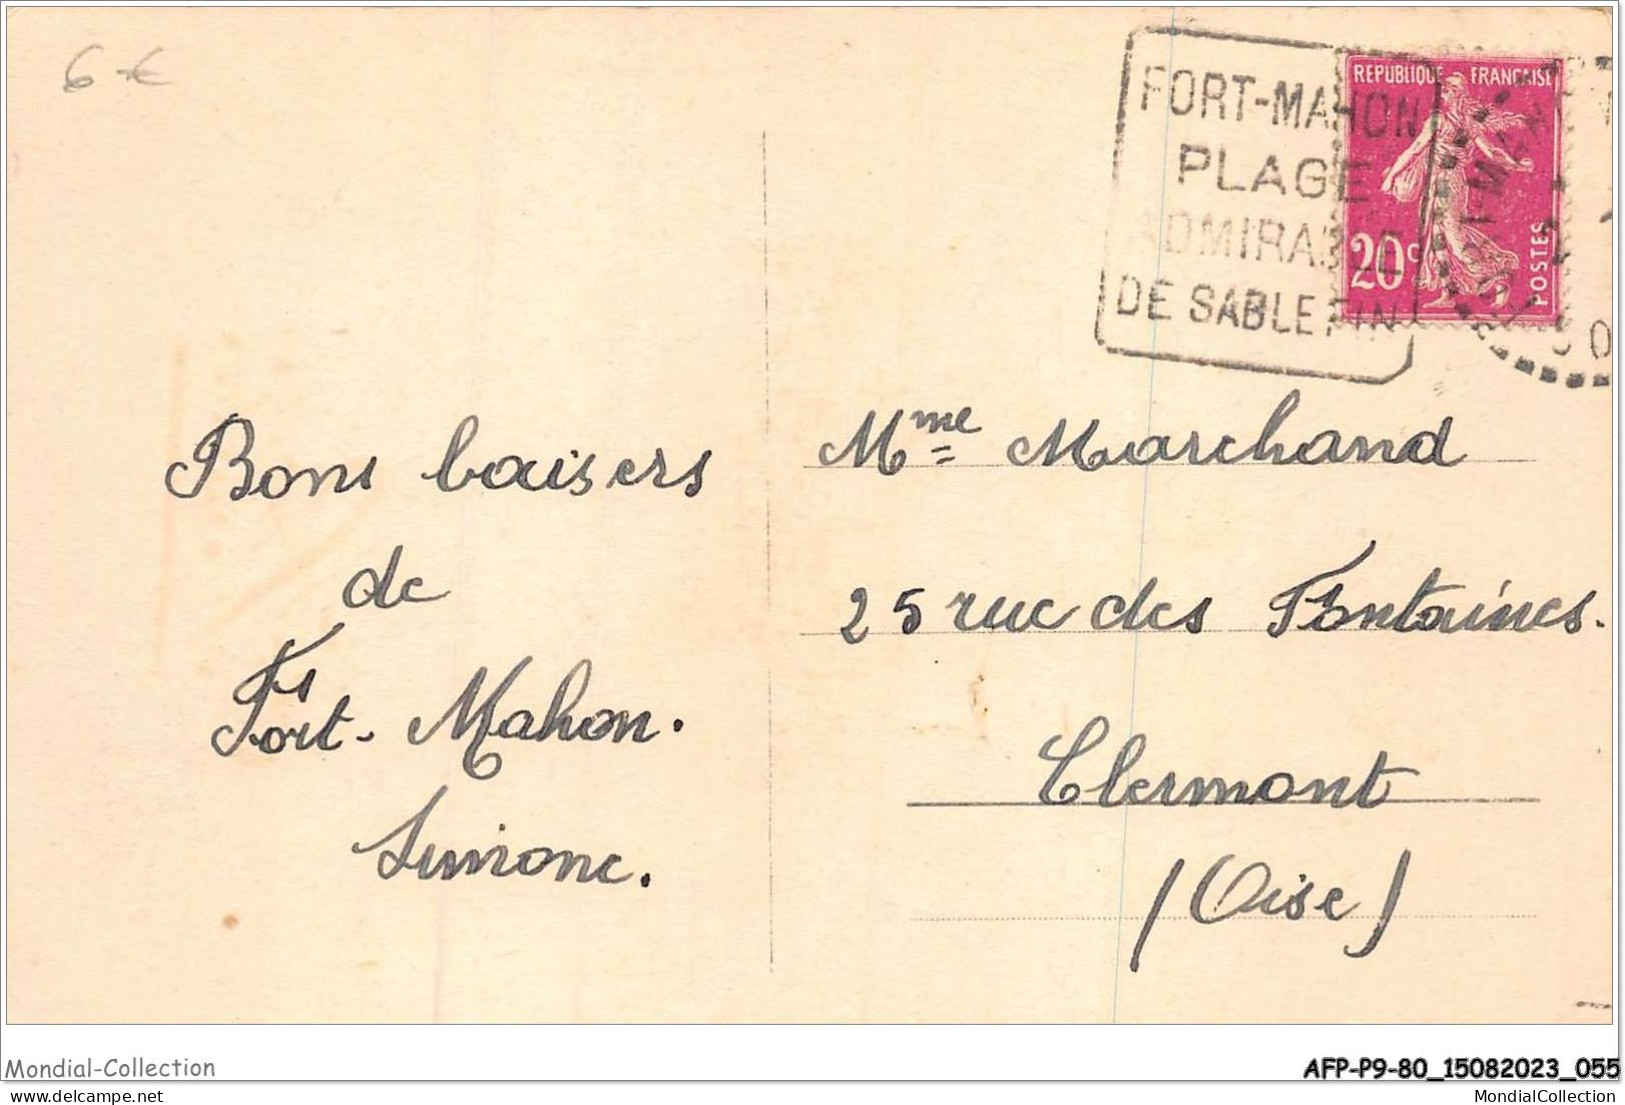 6 €
FORT-MAHON
PLAGE
ADMIRABLE
DE SABLE FIN
REPUBLIQUE FRANÇAISE
20c
POSTES
Bons baisers
de
Fort-Mahon.
Simone.
Mme Marchand
25 rue des Fontaines.
Clermont
(Oise)
Mondial-Collection
AFP-P9-80_15082023_055
delcampe.net
MondialCollection